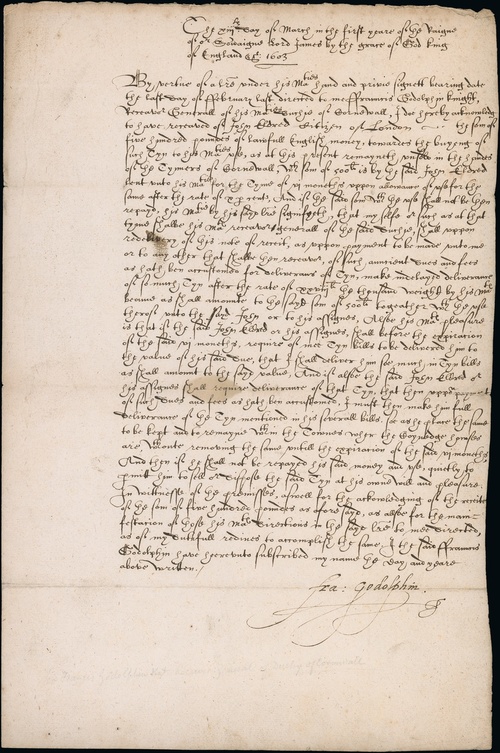 The xiijth day of March in the first yeare of the Raigne
of or Soveraigne Lord James by the grace of God king
of England &c: 1603
By vertue of a lre under his Maties hand and privie signett bearing date
the last day of February last directed to me Francis Godolphin knight,
Receavor Generall of his Mats Duchie of Cornewall, I doe hereby acknowledg
to have receaved of John Eldred Citizen of London the som of
five hundred poundes of lawfull English money, towardes the buyeng of
such Tyn to his Maties use, as at this present remayneth unsold in the handes
of the Tynners of Cornewall, wch som of 500li is by the said John Eldred
lent unto his Matie for the Tyme of vj moneths uppon alowance of use for the
same after the rate of x p cent, And if the said som wth the use shall not be then
repayd, his Matie by his sayd lre signifyeth, that my selfe or such as at that
tyme shalbe his Mats receavor generall of the said Duchie, shall uppon
redelivery of this note of receit, as uppon payment to be made unto me
or to any other that shalbe then receavor, of such auncient dues and fees
as hath ben accustomed for deliverance of Tyn, make undelayed deliverance
of so much Tyn after the rate of the thousand weight by his Matie
as shall amounte to the sayd som of 500li togeather wth the use
therof unto the said John or to his assignes, Also his Mats pleasure
is that if the said John Eldred or his assignes, shall before the expiration
of the said vj moneths, require of mee Tyn bills to be delivered him to
the value of his said due, that I shall deliver him soe much in Tyn bills
as shall amount to the sayd value, And if alsoe the said John Eldred or
his assignes shall require deliverance of that Tyn, that then uppon payment
of such dues and fees as hath ben accustomed, I must then make him full
deliverance of the Tyn mentioned in his severall bills, so as he place the same
to be kept and to remayne wth in the Townes wher the Coynadge howses
are, wthoute removing the same untill the expiration of the said vj moneths
And then if he shall not be repayed his said money and use, quietly to
permitt him to sell or dispose the said Tyn at his owne will and pleasure.
In wittnesse of the premisses, aswell for the acknowledging of the receite
of the som of five hundred poundes as aforesayd, as alsoe for the mani-
festation of those his Mats directions in the sayd lre to mee directed,
as of my dutifull redines to accomplish the same, I the said Francis
Godolphin have hereunto subscribed my name the day and yeare
above written.
Fra: Godolphin.